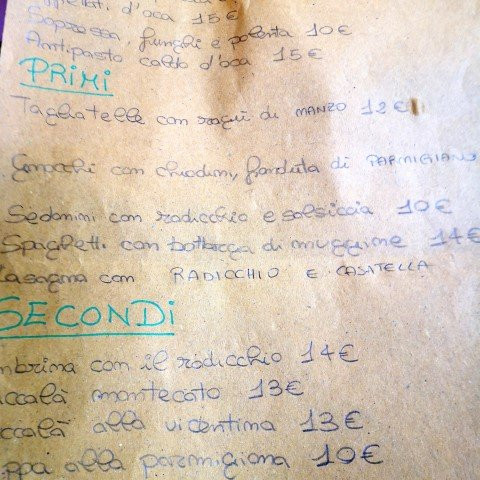 d'oca 15€
Sopressa, funghi e polenta 10€
Antipasto caldo d'oca 15€
PRIMI
Tagliatelle con ragù di MANZO 12€
Gnocchi con chiodini, fonduta di PARMIGIANO
Sedanini con radicchio e salsiccia 10€
Spaghetti con bottarga di muggine 14€
Lasagna con RADICCHIO E CASATELLA
SECONDI
mbrina con il radicchio 14€
ccalà mantecato 13€
ccalà alla vicentina 13€
ppa alla parmigiana 10€